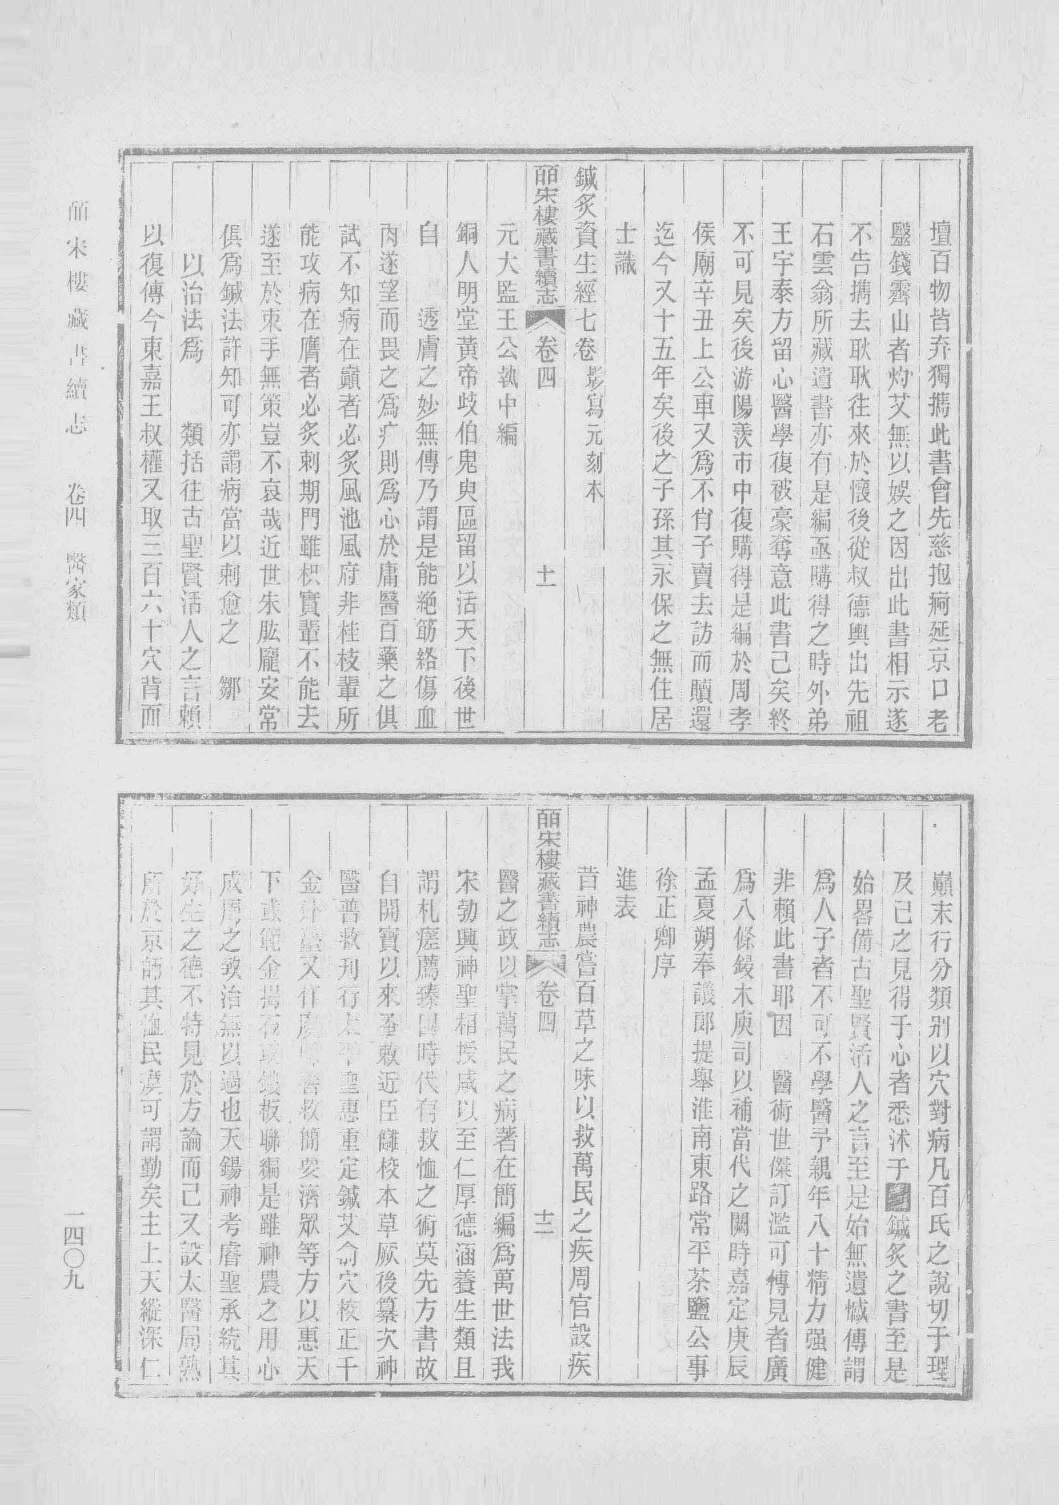 壇百物皆弃獨擕此書會先慈抱疴延京口老
毉錢霽山者灼艾無以娯之因出此書相示遂
不告擕去耿耿往來於懷後從叔德輿出先祖
石雲翁所藏遺書亦有是編亟購得之時外弟
王宇泰方留心醫學復被豪奪意此書已矣終
不可見矣後游陽羨市中復購得是編於周孝
侯廟辛丑上公車又爲不肖子賣去訪而贖還
迄今又十五年矣後之子孫其永保之無住居
士識
鍼炙資生經七卷 影寫元刻本
皕宋樓藏書續志 卷四 十一
元大監王公執中編
銅人明堂黃帝歧伯鬼臾區留以活天下後世
自 透膚之妙無傳乃謂是能絶筋絡傷血
肉遂望而畏之爲疒則爲心於庸醫百藥之俱
試不知病在巔者必炙風池風府非桂枝輩所
能攻病在膺者必炙刺期門雖枳實輩不能去
遂至於束手無策豈不哀哉近世朱肱龐安常
俱爲鍼法許知可亦謂病當以刺愈之 鄒
以治法爲 類括往古聖賢活人之言賴
以復傳今東嘉王叔權又取三百六十穴背而
巔末行分類别以穴對病凡百氏之說切于理
及已之見得于心者悉沭于 鍼炙之書至是
始畧備古聖賢活人之言至是始無遺憾傳謂
爲人子者不可不學醫予親年八十精力强健
非賴此書耶因 醫術世傑訂濫可傳見者廣
爲八條鋟木庾司以補當代之闕時嘉定庚辰
孟夏朔奉議郎提舉淮南東路常平茶鹽公事
徐正卿序
進表
昔神農嘗百草之味以救萬民之疾周官設疾
皕宋樓藏書續志 卷四 十二
醫之政以掌萬民之病著在簡編爲萬世法我
宋勃興神聖相授咸以至仁厚德涵養生類且
謂札瘥薦臻四時代有救恤之術莫先方書故
自開寶以來蚤敕近臣讎校本草厥後纂次神
醫普救刊行太平聖惠重定鍼艾俞穴校正千
金外臺又作慶 善救簡要濟眾等方以惠天
下或範金揭石或鏤板聯編是雖神農之用心
成周之致治無以過也天錫神考睿聖承統其
好生之德不特見於方論而已又設太醫局熟
所於京師其恤民瘼可謂勤矣主上天縱深仁
皕宋樓藏書續志 卷四 醫家類
一四〇九